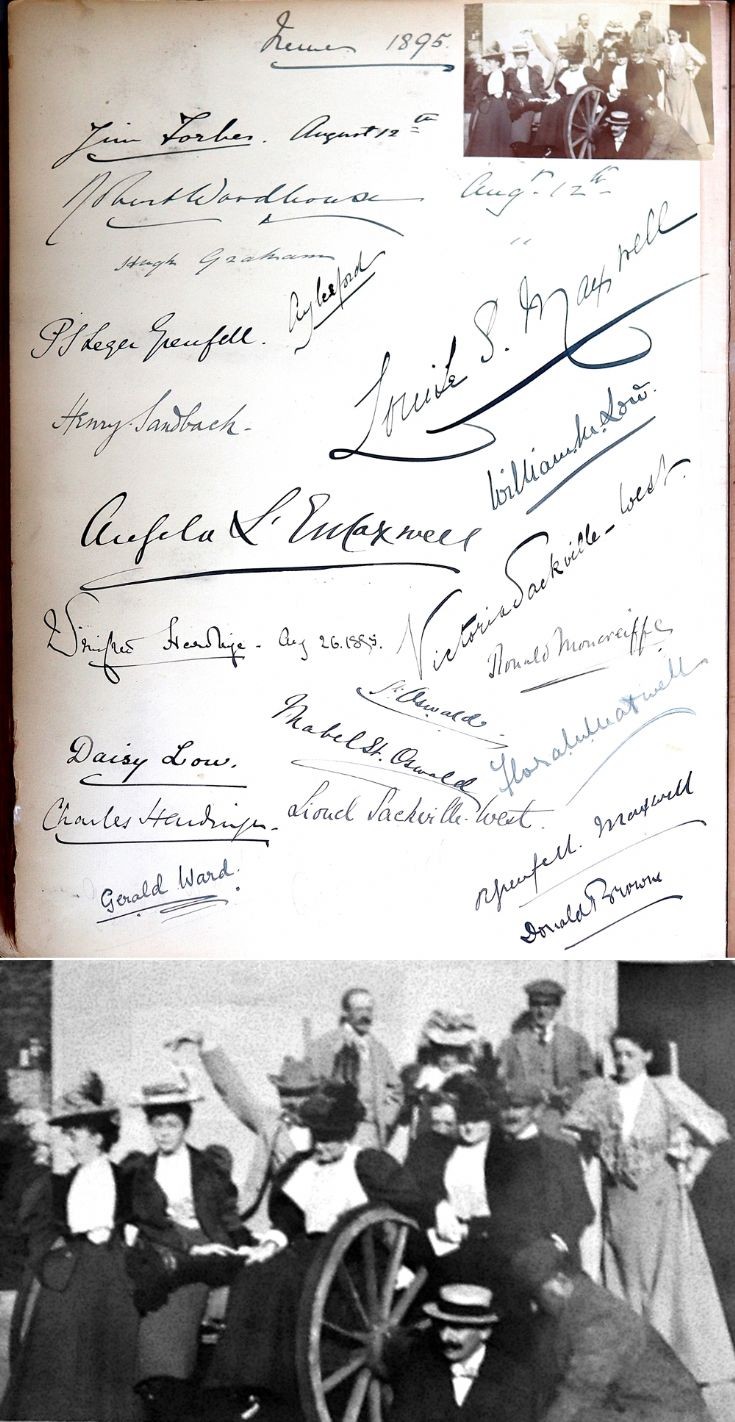 1895.
Jim Forbes. August 12th
Robert Woodhouse Augt. 12th
Hugh Graham "
Aylesford
Louise S. Maxwell
P S Leger Grenfell.
Henry Sandbach.
William M. Low.
Angela L. E. Maxwell
Victoria Sackville-West.
Winifred Hardinge - Aug 26. 1895.
Ronald Moncreiffe
St. Oswald.
Mabel St. Oswald
Daisy Low.
Charles Hardinge.
Lionel Sackville-West.
Maxwell
Gerald Ward.
Donald Browne